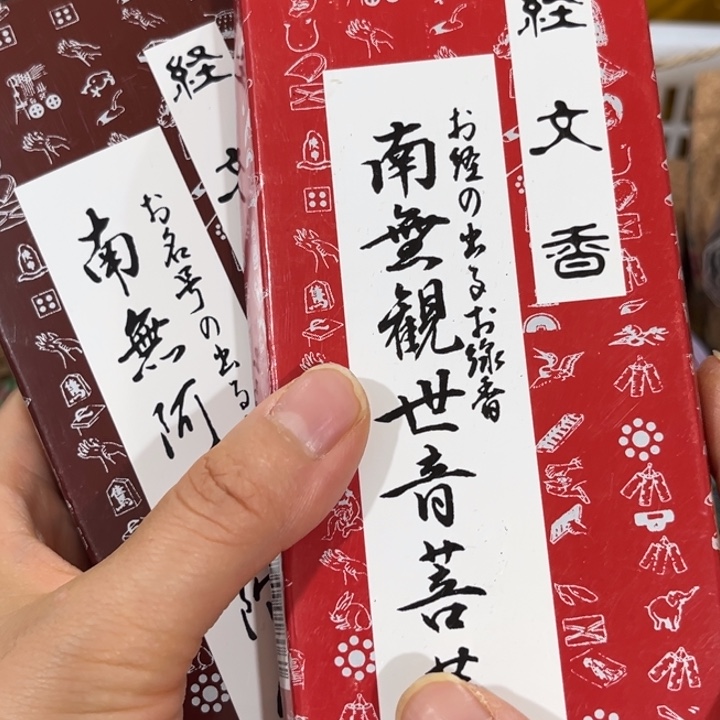 経文香
お経の出るお線香
南無観世音菩
経文
お名号の出る
南無阿